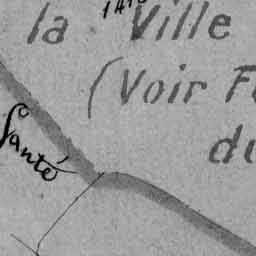 la Ville
(Voir
du
Santé